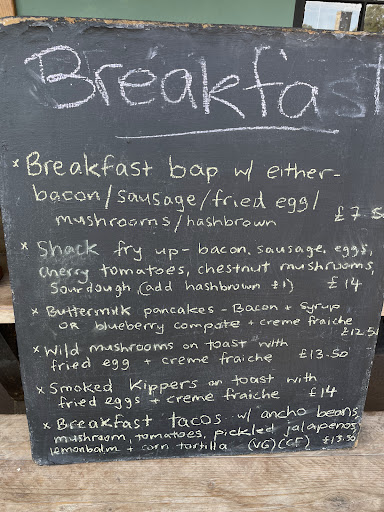 Breakfast
x Breakfast bap w/ either-
bacon/sausage/fried egg/
mushrooms/hashbrown £7.50
x Shack fry up - bacon, sausage, eggs,
cherry tomatoes, chestnut mushrooms,
Sourdough (add hashbrown £1) £14
x Buttermilk pancakes - Bacon + Syrup
OR blueberry compote + creme fraiche £12.50
x Wild mushrooms on toast with
fried egg + creme fraiche £13.50
x Smoked Kippers on toast with
fried eggs + creme fraiche £14
x Breakfast tacos w/ ancho beans,
mushroom, tomatoes, pickled jalapenos,
lemonbalm + corn tortilla (VG)(GF) £13.50